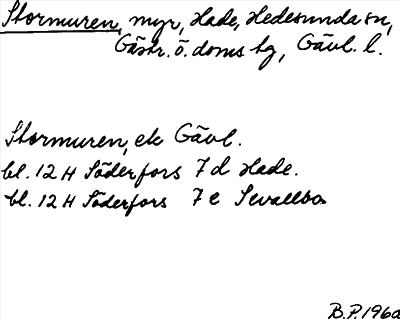 Stormuren, myr, Hade, Hedesunda sn,
Gästr. ö. doms tg, Gävl. l.
Stormuren, ek Gävl.
bl. 12 H Söderfors 7 d Hade.
bl. 12 H Söderfors 7 e Sevallbo
B.P. 1960